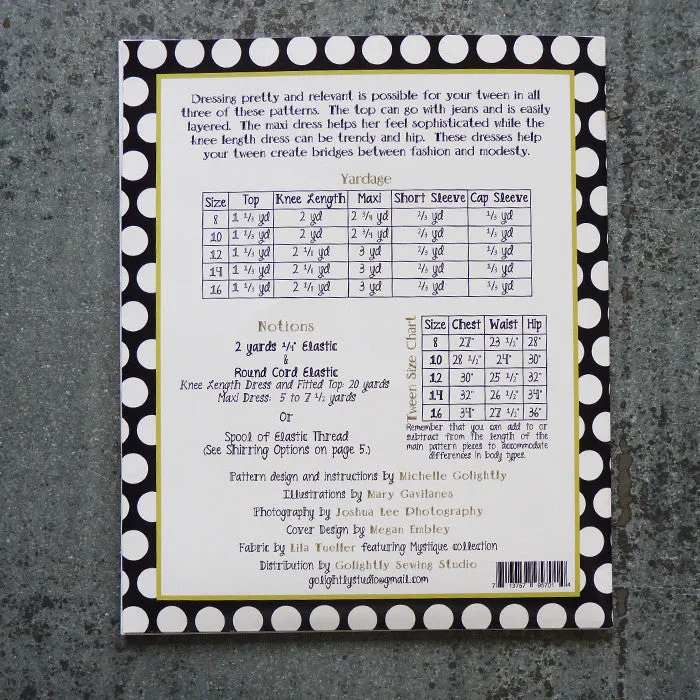 Dressing pretty and relevant is possible for your tween in all
three of these patterns. The top can go with jeans and is easily
layered. The maxi dress helps her feel sophisticated while the
knee length dress can be trendy and hip. These dresses help
your tween create bridges between fashion and modesty.
Yardage
Size Top Knee Length Maxi Short Sleeve Cap Sleeve
8 1 1/3 yd 2 yd 2 3/4 yd 2/3 yd 1/3 yd
10 1 1/3 yd 2 yd 2 3/4 yd 2/3 yd 1/3 yd
12 1 1/3 yd 2 1/3 yd 3 yd 2/3 yd 1/3 yd
14 1 1/3 yd 2 1/3 yd 3 yd 2/3 yd 1/3 yd
16 1 1/3 yd 2 1/3 yd 3 yd 2/3 yd 1/3 yd
Notions
2 yards 1/4" Elastic
&
Round Cord Elastic
Knee Length Dress and Fitted Top: 20 yards
Maxi Dress: 5 to 7 1/2 yards
Or
Spool of Elastic Thread
(See Shirring Options on page 5.)
Tween Size Chart
Size Chest Waist Hip
8 27" 23 1/2" 28"
10 28 1/2" 24" 30"
12 30" 25 1/2" 32"
14 32" 26 1/2" 34"
16 34" 27 1/2" 36"
Remember that you can add to or
subtract from the length of the
main pattern pieces to accommodate
differences in body types.
Pattern design and instructions by Michelle Golightly
Illustrations by Mary Gavilanes
Photography by Joshua Lee Photography
Cover Design by Megan Embley
Fabric by Lila Tueller featuring Mystique collection
Distribution by Golightly Sewing Studio
golightlystudio@gmail.com
7 13757 95701 4